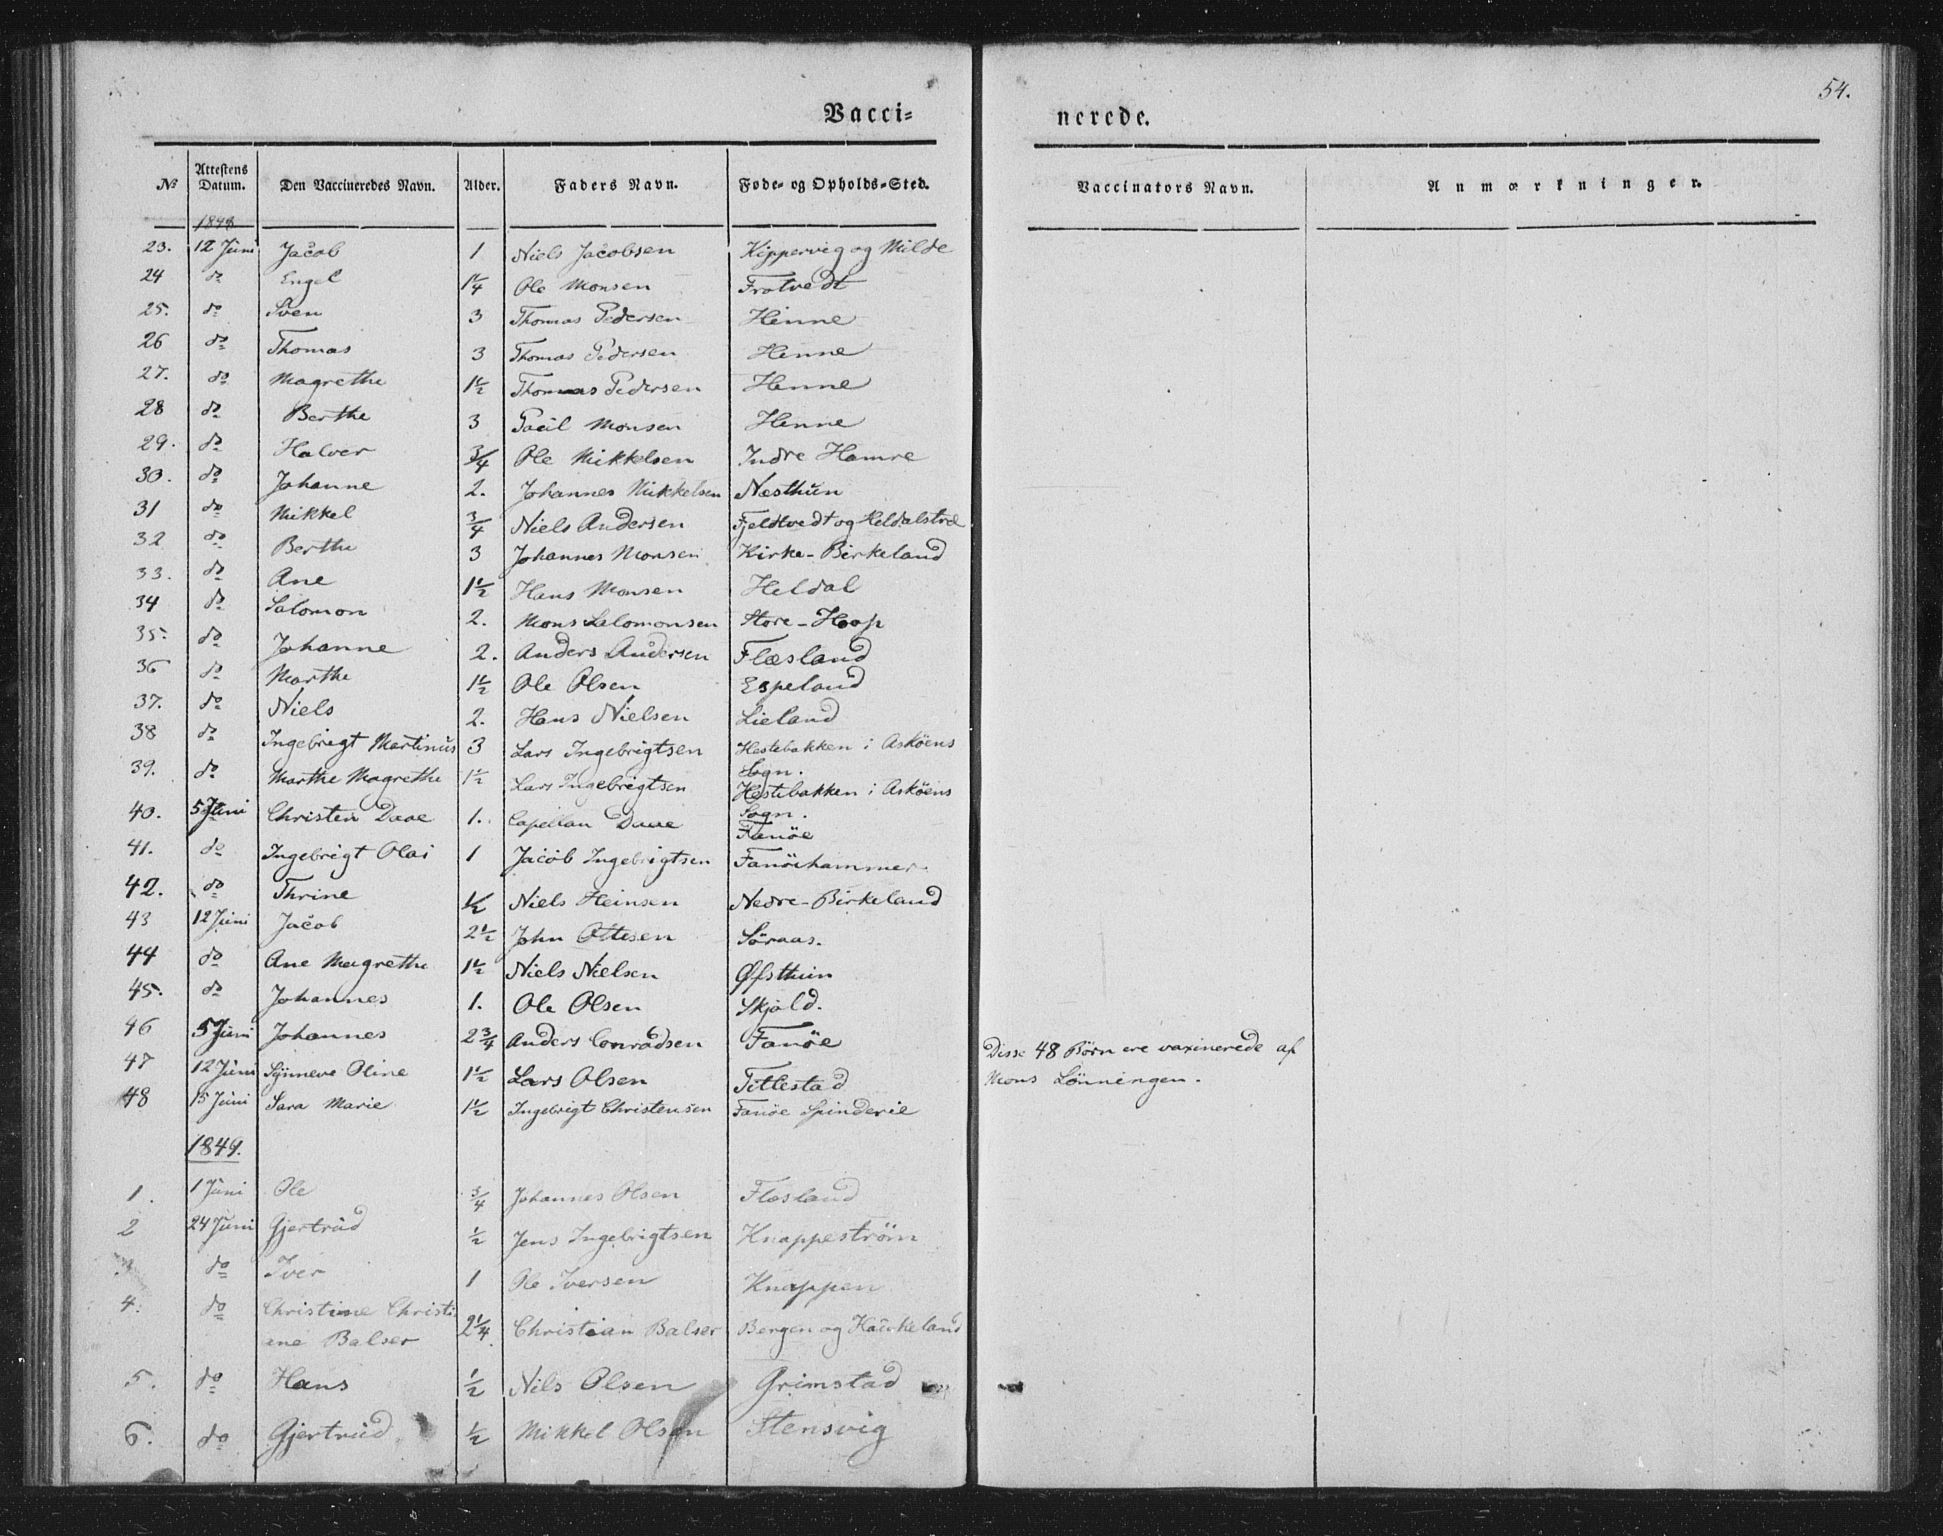 54.
Vacci-
nerede.
№ Attestens Datum. Den Vaccineredes Navn. Alder. Faders Navn. Føde- og Opholds-Sted. Vaccinators Navn. Anmærkninger.
1848
23. 12 Juni Jacob 1 Niels Jacobsen Kippervig og Milde
24 do Engel 1¼ Ole Monsen Frotvedt
25. do Sven 3 Thomas Pedersen Hinne
26 do Thomas 3 Thomas Pedersen Henne
27. do Magrethe 1½ Thomas Pedersen Henne
28 do Berthe 3 Poul Monsen Henne
29. do Halver ¾ Ole Mikkelsen Indre Hamre
30. do Johanne 2. Johannes Mikkelsen Næsthun
31 do Mikkel ¾ Niels Andersen Fjeldtvedt og
32 do Berthe 3 Johannes Monsen Kirke-Birkeland
33. do Ane 1½ Hans Monsen Heldal
34 do Salomon 2. Mons Salomonsen Store-Hop
35. do Johanne 2. Anders Andersen Flæsland
36 do Marthe 1½ Ole Olsen Espeland
37. do Niels 2. Hans Nielsen Lieland
38 do Ingebrigt Martinus 3 Lars Ingebrigtsen Hestebakken i Asköens
Sogn.
39. do Marthe Magrethe 1½ Lars Ingebrigtsen Hestebakken i Asköens
Sogn.
40. 5 Juni Christen Daae 1. Capellan Daae Fanöe
41. do Ingebrigt Olai 1 Jacob Ingebrigtsen Fanöehammer
42. do Thrine ½ Niels Heinsen Nedre-Birkeland
43 12 Juni Jacob 2½ John Ottesen Söraas.
44 do Ane Magrethe 1½ Niels Nielsen Øfsthun
45. do Johannes 1. Ole Olsen Skjold.
46 5 Juni Johannes 2¾ Anders Conradsen Fanöe
47 12 Juni Synneve Oline 1½ Lars Olsen Titlestad
48 15 Juni Sara Marie 1½ Ingebrigt Christensen Fanöe Spinderie
Disse 48 Börn ere vaxinerede af
Mons Lönningen.
1849.
1. 1 Juni Ole ¾ Johannes Olsen Flæsland
2 24 Juni Gjertrud ½ Jens Ingebrigtsen Knappeström
3 do Iver 1 Ole Iversen Knappen
4. do Christine Christi
ane Balser 2¼ Christian Balser Bergen og Haukeland
5. do Hans ½ Nils Olsen Grimstad
6. do Gjertrud ½ Mikkel Olsen Stensvig